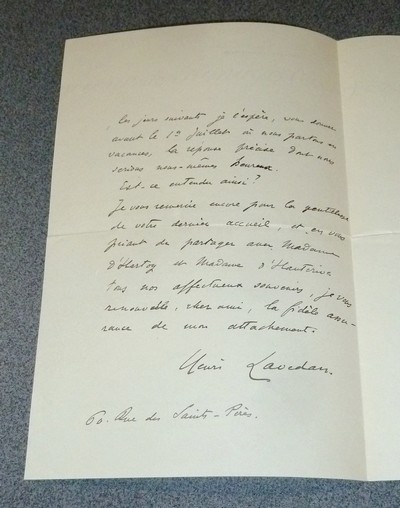 les jours suivants je l'espère, vous donner
avant le 1er juillet où nous partons en
vacances, la réponse précise dont nous
serions nous-mêmes heureux.
Est-ce entendu ainsi?
Je vous remercie encore pour la gentillesse
de votre dernier accueil, et en vous
priant de partager avec Madame
et Madame d'Hauterive
tous nos affectueux souvenirs, je vous
renouvelle, cher ami, la fidèle assu-
rance de mon attachement.
Henri Lavedan.
60. Rue des Saints-Pères.